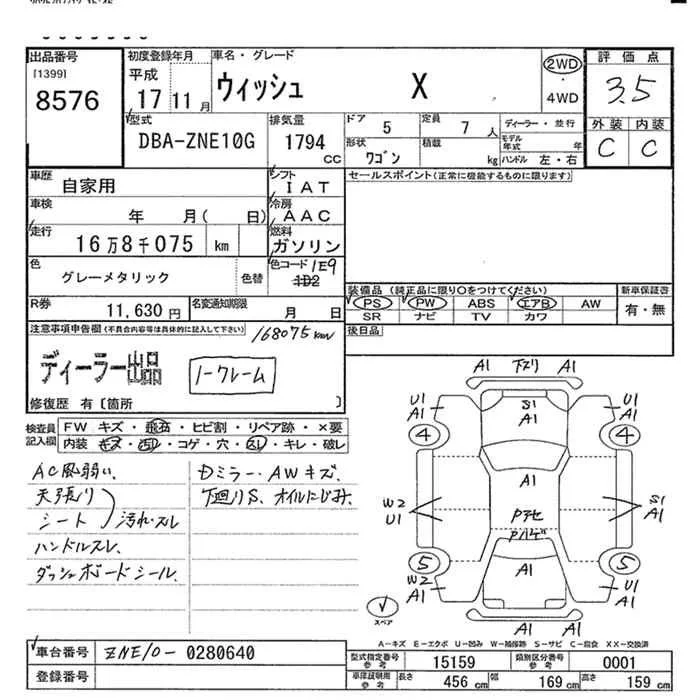 出品番号
[1399]
8576
初度登録年月
平成
17 11 月
車名・グレード
ウィッシュ X
2WD
・
4WD
評価点
3.5
外装 内装
C C
型式
DBA-ZNE10G
排気量
1794
CC
ドア 5
定員 7 人
ディーラー・並行
形状 ワゴン
積載 kg
モデル年式 年
ハンドル 左・右
車歴
自家用
シフト
IAT
セールスポイント(正常に機能するものに限ります)
車検
年 月( 日)
冷房
AAC
走行
16万8千075 km
燃料
ガソリン
色
グレーメタリック
色替
色コード 1E9
1D2
装備品 (純正品に限り○をつけてください)
PS PW ABS エアB AW
SR ナビ TV カワ
新車保証書
有・無
R券
11,630 円
名変通知期限
月 日
後日品
注意事項申告欄(不具合内容等は具体的に記入して下さい)
168075km
ディーラー出品
ノークレーム
修復歴 有〔箇所 〕
検査員記入欄
FW キズ・飛石・ヒビ割・リペア跡・×要
内装 キズ・汚れ・コゲ・穴・スレ・キレ・破レ
AC風弱い、
天張り
シート
汚れ・スレ
ハンドルスレ、
ダッシュボードシール、
Dミラー・AWキズ、
下廻りS、オイルにじみ、
A1 下ズリ A1
U1
A1
S1
A1
U1
A1
4
4
A1
W2
U1
S1
A1
5
5
A1
W2
A1
U1
A1
A1 A1
スペア
A-キズ E-エクボ U-凹み W-補修跡 S-サビ C-腐食 XX-交換済
車台番号
ZNE10-0280640
登録番号
型式指定番号
参考
15159
類別区分番号
参考
0001
車庫証明用
参考
長さ 456 cm
幅 169 cm
高さ 159 cm